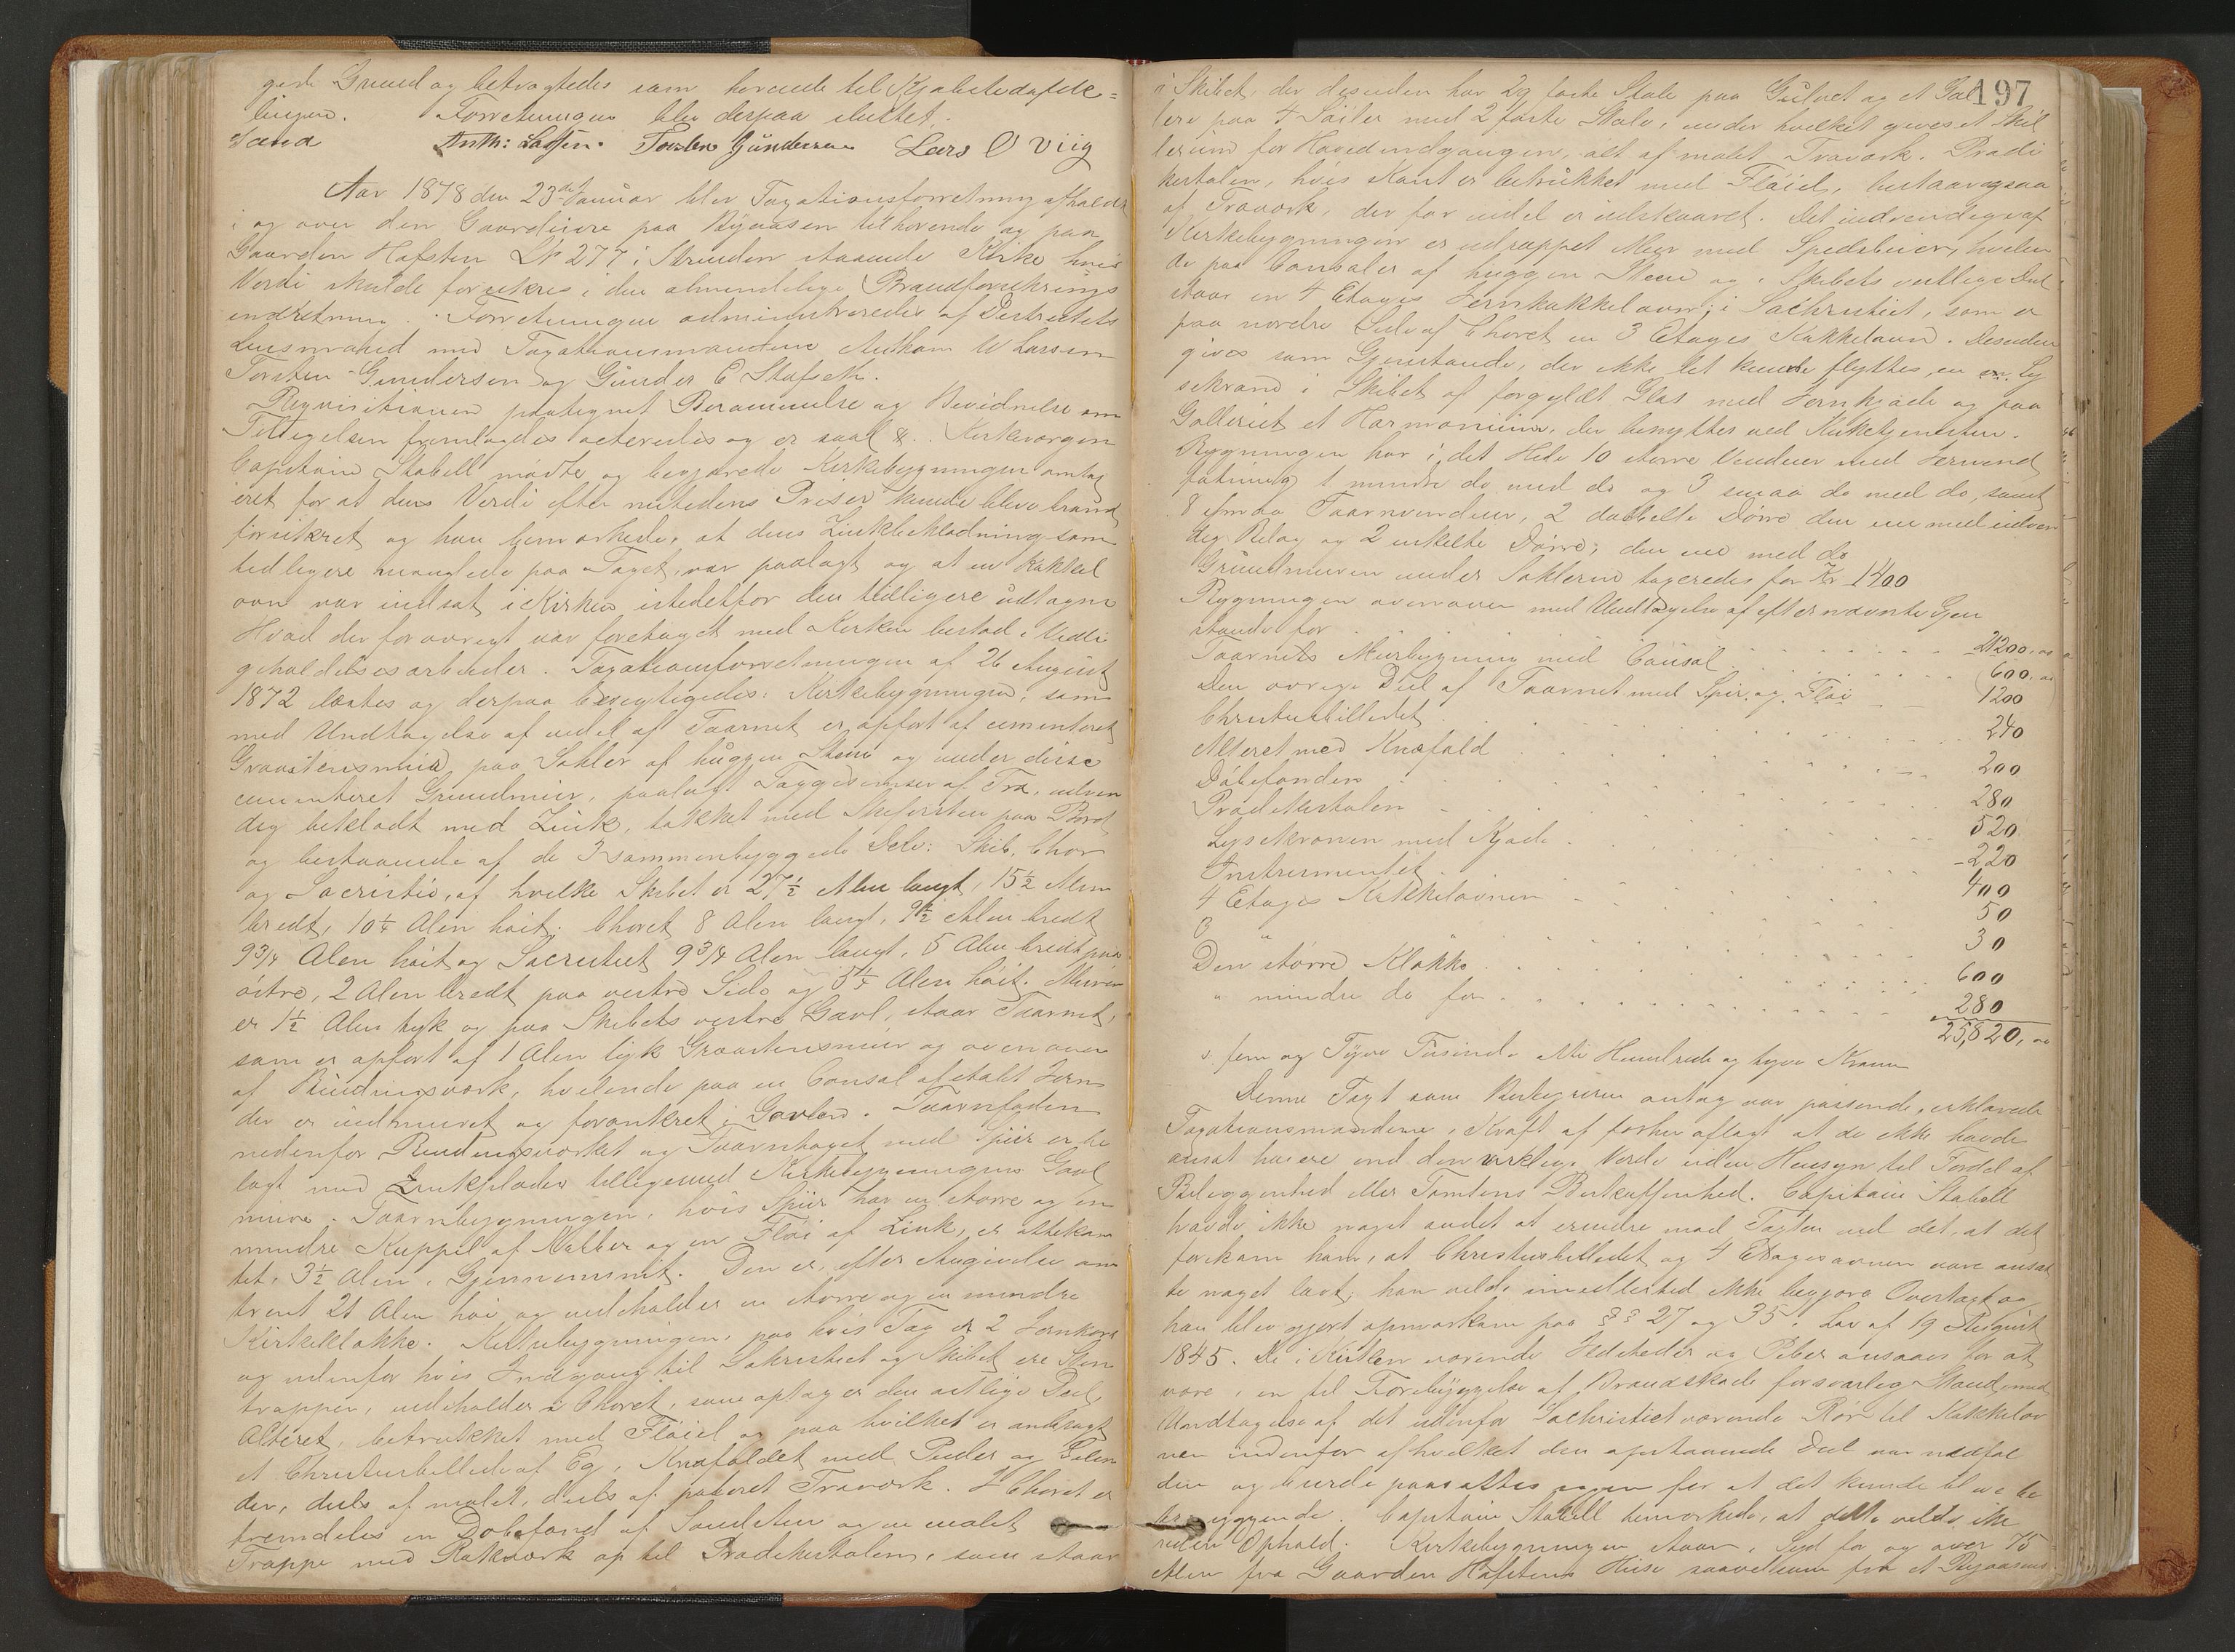 gede Grund og betragtedes som hørende til Kjøbstedafde=
lingen. Forretningen blev derpaa sluttet.
Sand Anth: Larsen. Torsten Gundersen Lars O Viig
Aar 1878 den 23de Januar blev Taxationsforretning afholdt
i og over den Gaardeiere paa Byaasen tilhørende og paa
Gaarden Hafsten LN 277 i Strinden staaende Kirke hvis
Verdi skulde forsikres i den almindelige Brandforsikrings
indretning. Forretningen administreredes af Distriktets
Lensmand med Taxationsmændene Antham W Larsen
Torsten Gundersen og Gunder E Stafseth.
Reqvisitionen paategnet Berammelse og Bevidnelse om
Tillyselsen fremlagdes acteredes og er saal &. Kirkeværgen
Capitain Stabell mødte og begjærede Kirkebygningen omtax
eret for at dens Verdi efter nutidens Priser kunde blive brand
forsikret og han bemærkede, at dens Zinkbeklædning som
tidligere manglede paa Taget, var paalagt og at en Kakkel
ovn var indsat i Kirken istedetfor den tidligere udtagne
Hvad der forøvrigt var foretaget med Kirken bestod i Vedli
geholdelsesarbeider. Taxationsforretningen af 26 August
1872 læstes og derpaa besigtigedes Kirkebygningen, som
med Undtagelse af endel af Taarnet er opført af cementeret
Graastensmur paa Sokler af huggen Steen og under disse
cementeret Grundmur, paalagt Taggesimser af Træ, udven
dig beklædt med Zink, tækket med Skifersten paa Bord
og bestaaende af de 3 sammenbyggede Dele: Skib, Chor
og Sacristie, af hvilke Skibet er 27½ Alen langt, 15½ Alen
bredt, 10¼ Alen høit; Choret 8 Alen langt, 9½ Alen bredt
9 3/4 Alen høit og Sacristiet 9 3/4 Alen langt, 5 Alen bredt paa
østre, 2 Alen bredt paa vestre Side og 5¼ Alen høit. Muren
er 1½ Alen tyk og paa Skibets vestre Gavl, staar Taarnet,
som er opført af 1 Alen tyk Graastensmur og ovenover
af Bindingsværk, hvilende paa en Consol af støbt Jern
der er indmuret og forankret i Gavlen. Taarnfoden
nedenfor Bindingsværket og Taarntaget med Spiir er be
lagt med Zinkplader tilligemed Kirkebygningens Gavl
mure. Taarnbygningen, hvis Spiir har en større og en
mindre Kuppel af Kobber og en Fløi af Zink, er ottekan
tet, 3½ Alen i Gjennemsnit. Den er efter Angivelse om
trent 21 Alen høi og indeholder en større og en mindre
Kirkeklokke. Kirkebygningen, paa hvis Tag er 2 Jernkors
og udenfor hvis Indgang til Sakristiet og Skibet ere Sten
trapper, indeholder i Choret, som optager den østlige Deel,
Alteret, betrukket med Fløiel og paa hvilket er anbragt
et Christusbillede af Eg, Knæfaldet med Puder og Gelen
der, dels af malet, dels af poleret Træværk. I Choret er
fremdeles en Døbefond af Sandsten og en malet
Trappe med Rækværk op til Prædikestolen, som staar
197
i Skibet, der desuden har 29 faste Stole paa Gulvet og et Gal
leri paa 4 Søiler med 2 faste Stole, under hvilket gives et Skil
lerum for Hovedindgangen, alt af malet Træværk. Prædi
kestolen, hvis Kant er betrukket med Fløiel, bestaar ogsaa
af Træværk, der for endel er udskaaret. Det indvendige af
Kirkebygningen er udrappet Mur med Spidsbuer, hvilen
de paa Consoler af huggen Steen og i Skibets vestlige Deel
staar en 4 Etages Jernkakkelovn; i Sachristiet, som er
paa nordre Side af Choret en 3 Etages Kakkelovn. Desuden
gives som Gjenstande, der ikke let kunde flyttes, en Ly
sekrone i Skibet af forgyldt Glas med Jernkjæde og paa
Galleriet et Harmonium, der benyttes ved Kirketjenesten.
Bygningen har i det Hele 10 større Vinduer med Jernind
fatning 1 mindre do med do og 3 smaa do med do, samt
8 smaa Taarnvinduer, 2 dobbelte Døre den ene med udven
dig Belæg og 2 enkelte Døre, den ene med do
Grundmuren under Soklerne taxeredes for Kr 1400
Bygningen ovenover med Undtagelse af efternævnte Gjen
stande for . . . 21200,00
Taarnets Murbygning med Consol . . . 600,00
Den øvrige Deel af Taarnet med Spir og Fløi . . . 1200
Christusbilledet . . . 240
Alteret med Knæfald . . . 200
Døbefonden . . . 280
Prædikestolen . . . 520
Lysekronen med Kjæde . . . 220
Instrumentet . . . 400
4 Etages Kakkelovnen . . . 50
3 " . . . 30
Den større Klokke . . . 600
" mindre do for . . . 280
25,820,00
s. fem og Tyve Tusinde Otte Hundrede og tyve Kroner
Denne Taxt som Bestyreren antog var passende, erklærede
Taxationsmændene i Kraft af forhen aflagt at de ikke havde
ansat høiere end den virkelige Verdi uden Hensyn til Fordel af
Beliggenhed eller Tomtens Beskaffenhed. Capitain Stabell
havde ikke noget andet at erindre mod Taxten end det, at det
forekom ham, at Christusbilledet og 4 Etagesovnen vare ansat
te noget lavt; han vilde imidlertid ikke begjære Overtaxt og
han blev gjort opmærksom paa §§ 27 og 35 i Lov af 19 August
1845. De i Kirken værende Ildsteder og Piber ansaaes for at
være i en til Forebyggelse af Brandskade forsvarlig Stand, med
Undtagelse af det udenfor Sachristiet værende Rør til Kakkelov
nen indenfor af hvilket den opstaaende Deel var nedfal
den og burde paasættes igjen for at det kunde blive be
tryggende. Capitain Stabell bemærkede, at dette vilde ske
uden Ophold. Kirkebygningen staar i Syd for og over 75
Alen fra Gaarden Hafstens Huse saavelsom fra et Byaasens